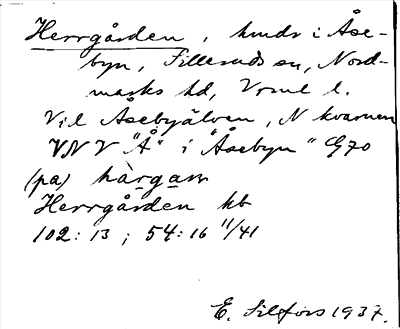 Herrgården, hmdr i Åse-
byn, Silleruds sn, Nord-
marks hd, Vrml l.
Vid Åsebyälven, N kvarnen
VNV "Å" i "Åsebyn" G70
(pa) hàrgaɳ
Herrgården kb
102:13; 54:16 11/41
E. Silfors 1937.